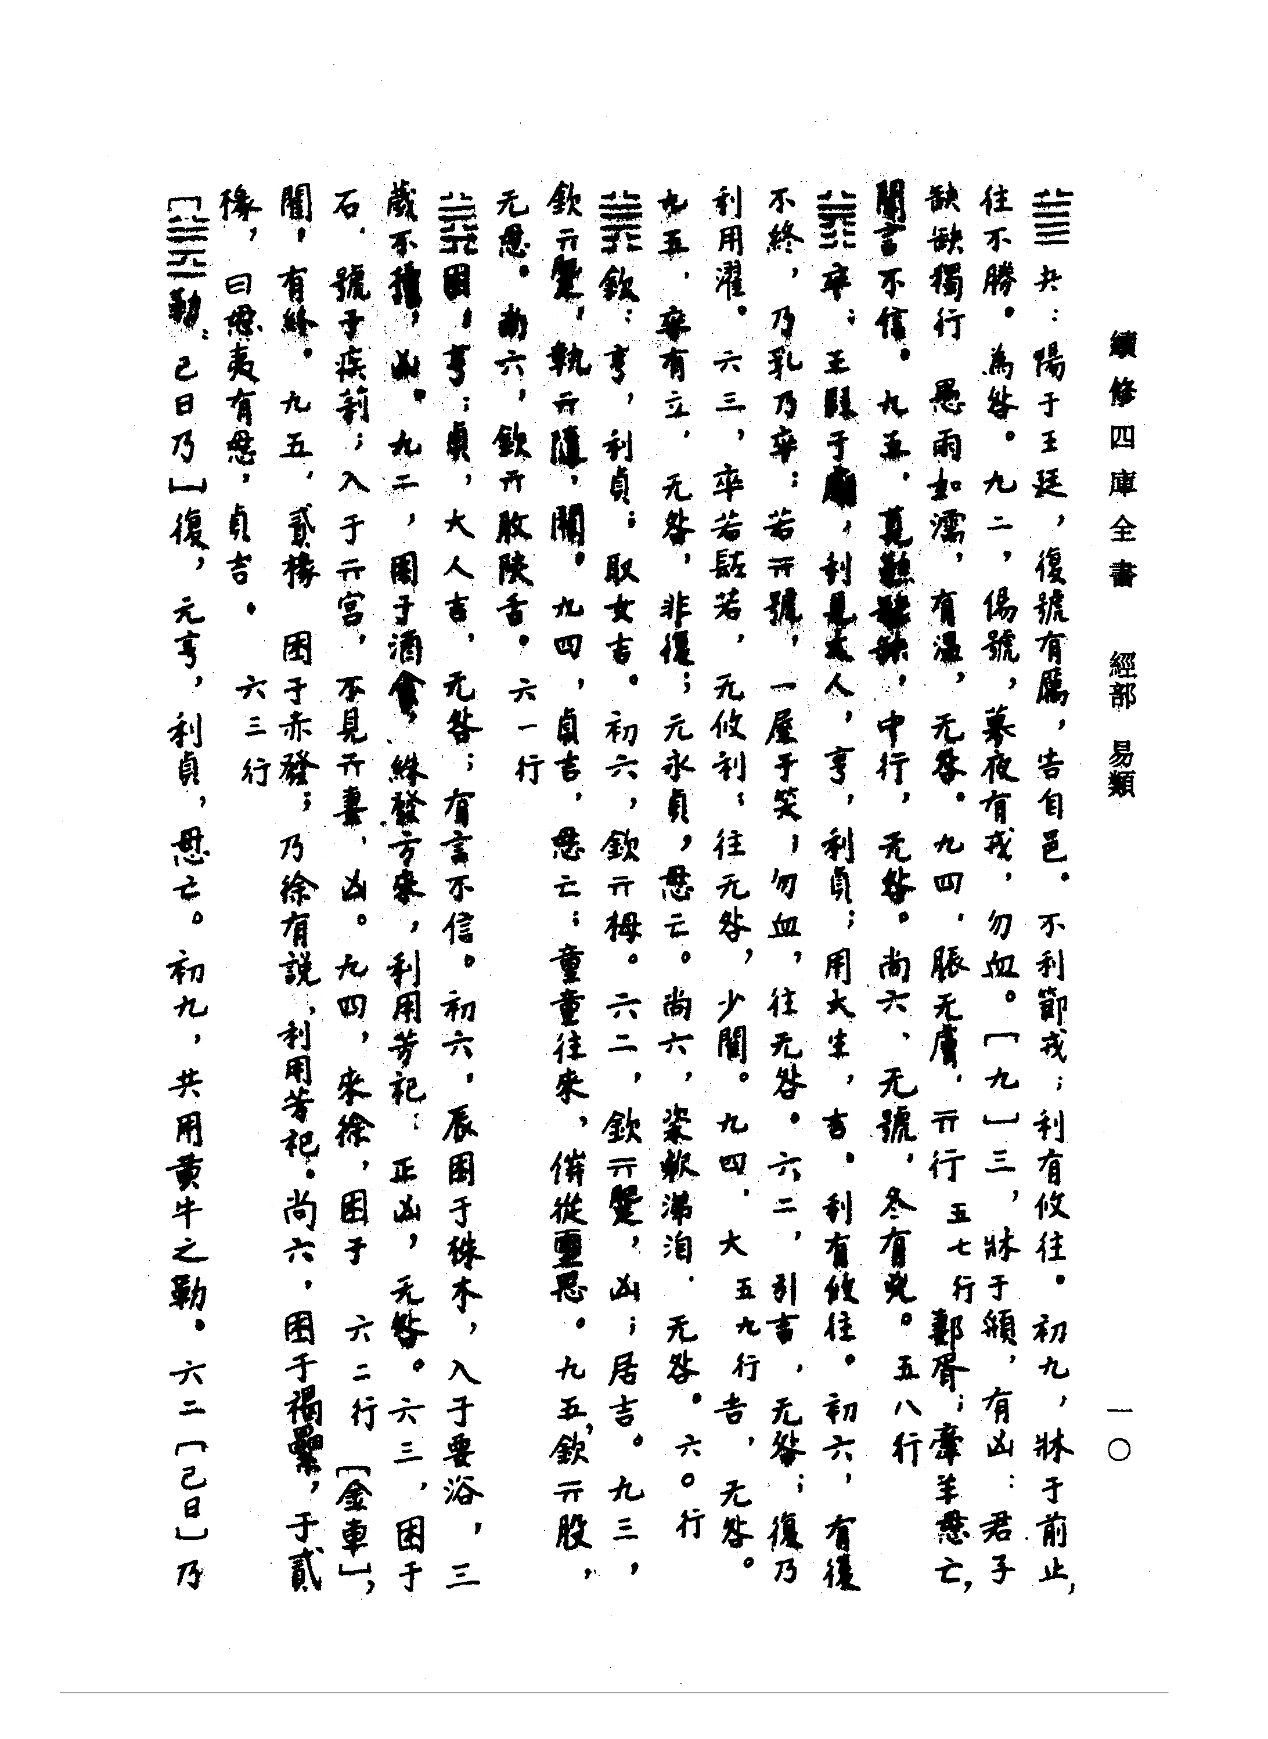 續修四庫全書　經部　易類　一〇
夬：陽于王廷，復號有厲，告自邑。不利節戎；利有攸往。初九，牀于前止，
往不勝。為咎。九二，傷號，募夜有戎，勿血。［九］三，牀于頯，有凶：君子
缺缺獨行　愚雨如濡，有溫，无咎。九四．脤无膚．亓行五七行鄀胥；牽羊𢙓亡，
聞言不信。九五．莧缺缺，中行，无咎。尚六、无號．冬有兇。五八行
䷬卒；王叚于廟，利見大人，亨，利貞；用大生，吉．利有攸往。初六，有復
不終，乃乳乃卒；若亓號，一屋于笑；勿血，往无咎。六二，引吉，无咎；復乃
利用濯。六三，卒若㽵若，无攸利；往无咎，少閵。九四．大五九行吉，无咎。
九五．卒有立．无咎，非復；元永貞，𢙓亡。尚六，涕洎．无咎。六〇行
䷞欽：亨，利貞；取女吉。初六，欽亓栂。六二，欽亓，凶；居吉。九三，
欽亓，執亓隨，閵。九四，貞吉，𢙓亡；童童往來，傰從璽思。九五，欽亓股，
无𢙓。尚六，欽亓胶陝舌。六一行
䷮困，亨；貞，大人吉，无咎；有言不信。初六，辰困于株木，入于要浴，三
歲不，凶。九二，困于酒食，絑發方來，利用芳祀：正凶，无咎。六三，困于
石．號于疾莉；入于亓宮，不見亓妻，凶。九四，來徐，困于六二行［金車］，
閵，有終。九五，貳椽　困于赤發；乃徐有說，利用芳祀。尚六，困于褐纍，于貳
椽，曰𢙓夷有𢙓，貞吉。六三行
［䷰勒，己日乃］復，元亨，利貞，𢙓亡。初九，共用黃牛之勒。六二［己日］乃